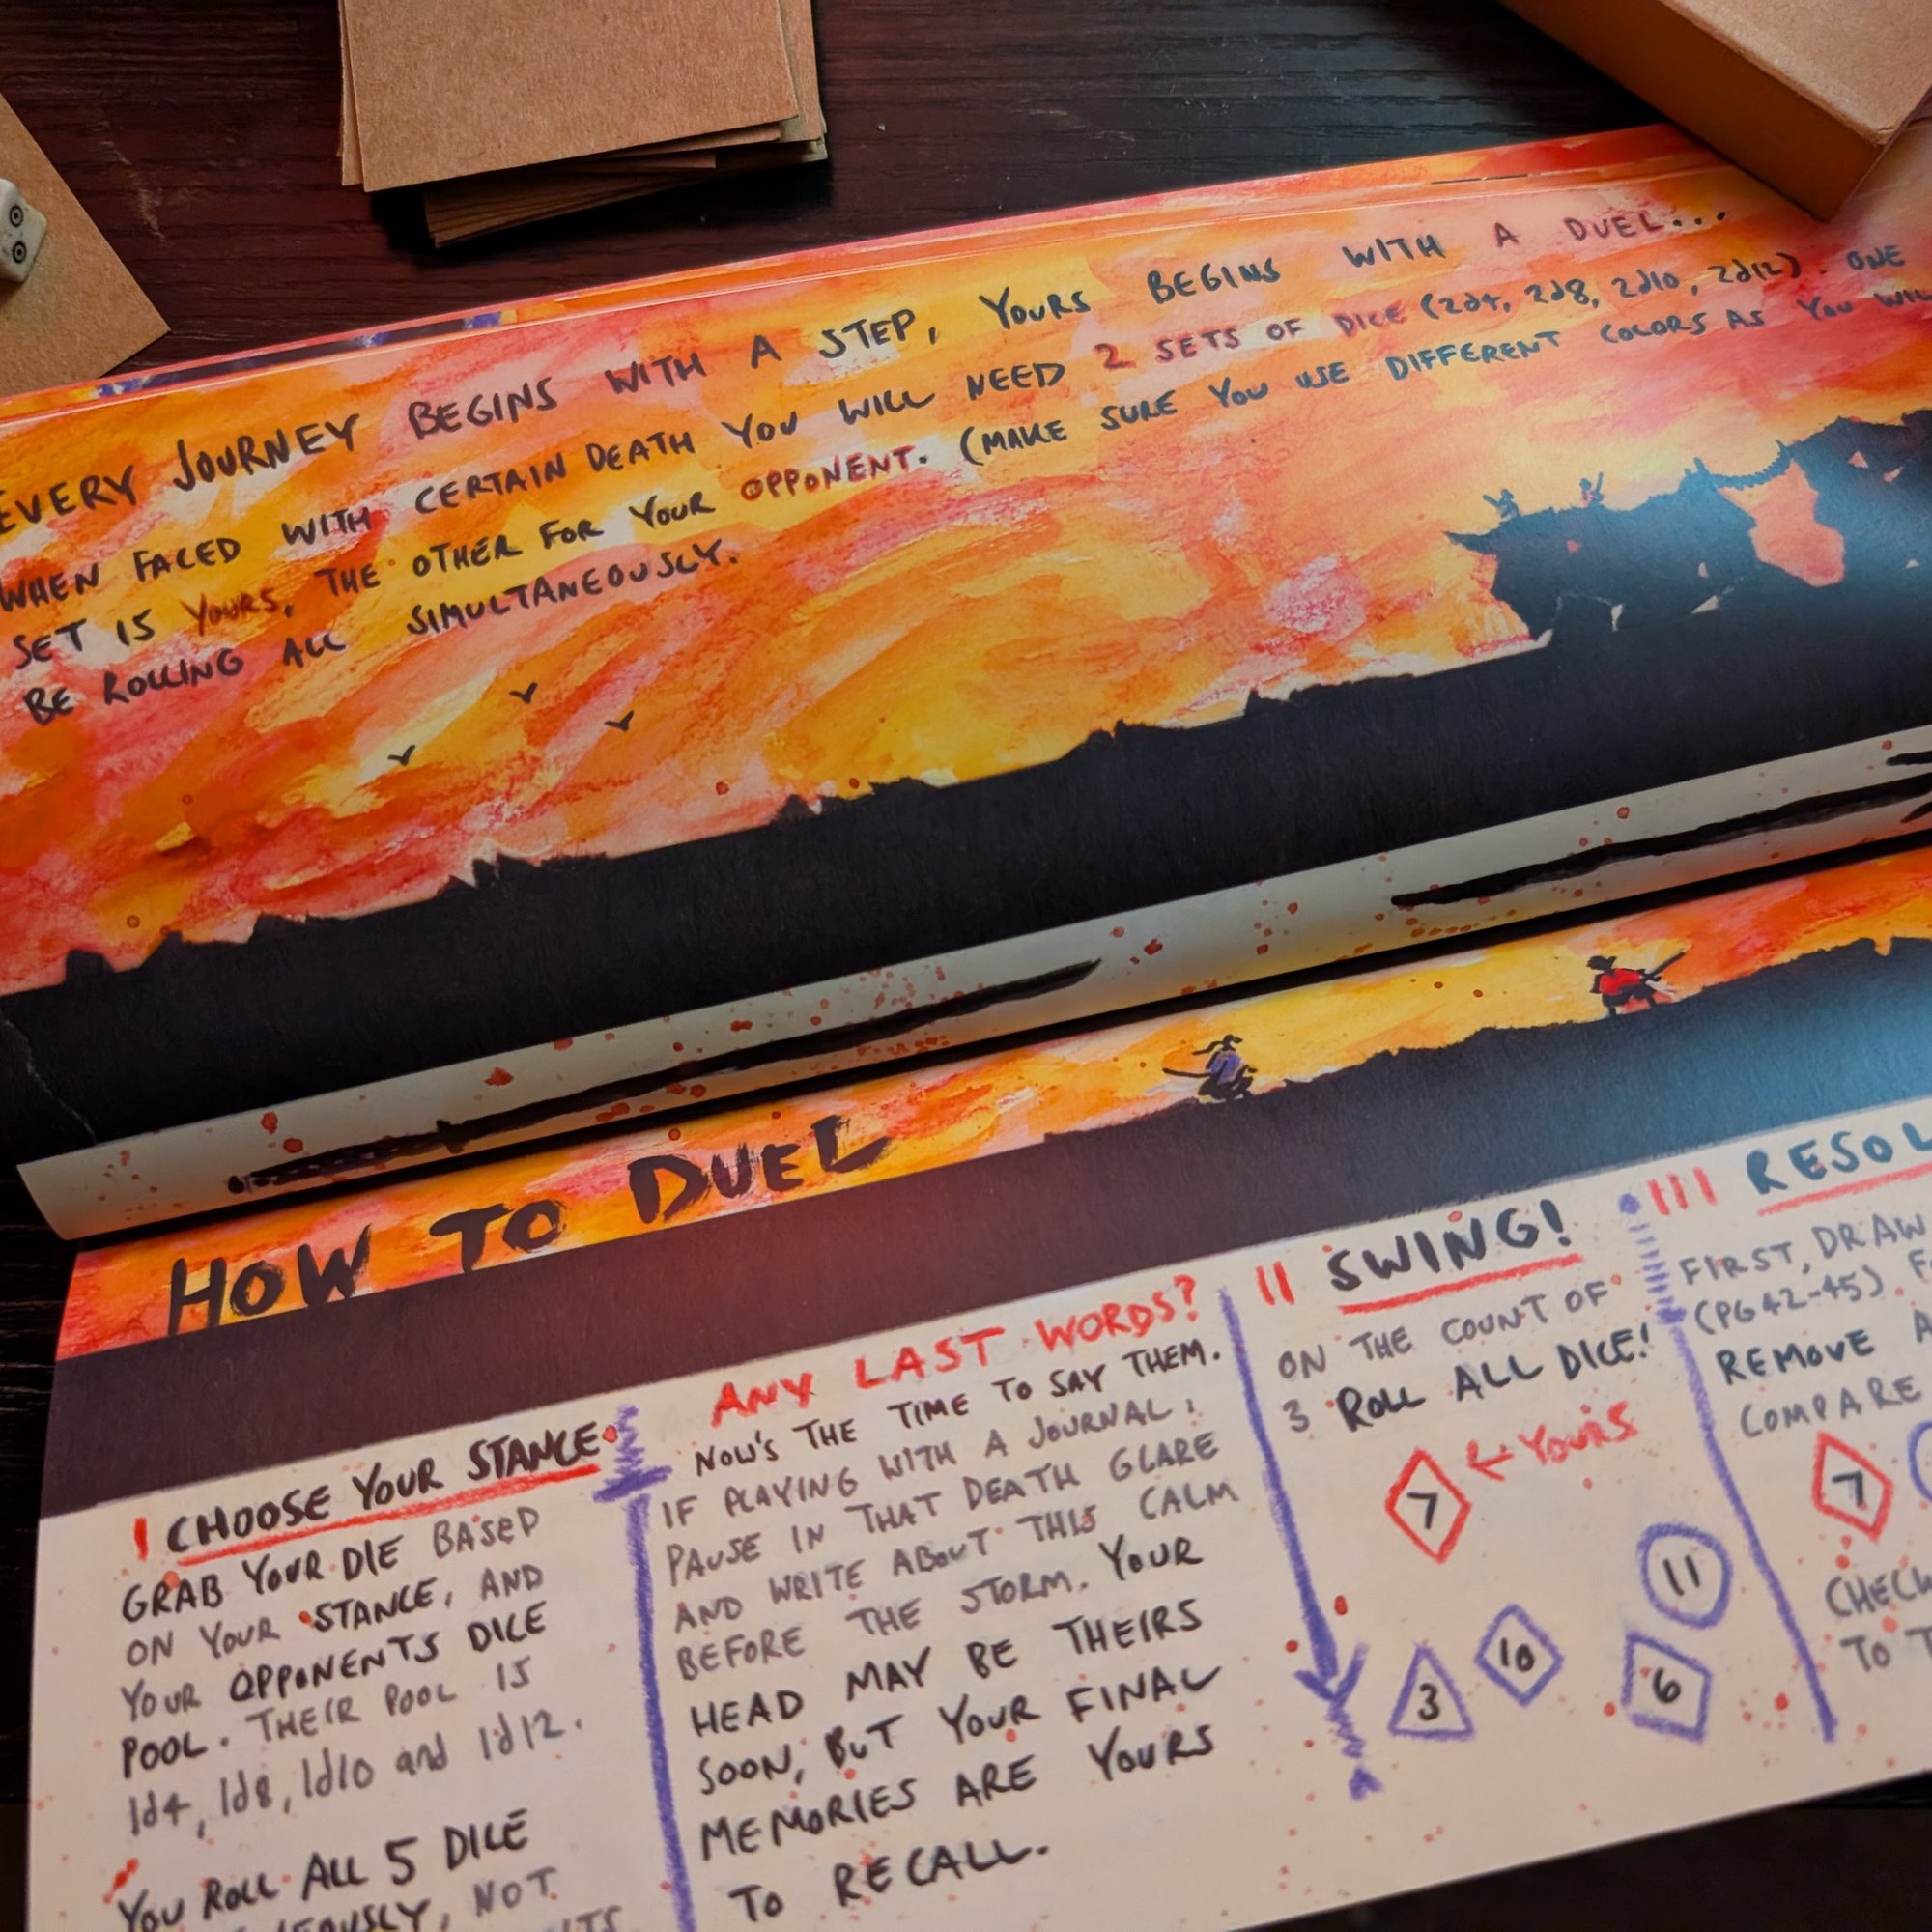 EVERY JOURNEY BEGINS WITH A STEP, YOURS BEGINS WITH A DUEL...
WHEN FACED WITH CERTAIN DEATH YOU WILL NEED 2 SETS OF DICE (2d4, 2d8, 2d10, 2d12). ONE
SET IS YOURS, THE OTHER FOR YOUR OPPONENT. (MAKE SURE YOU USE DIFFERENT COLORS AS YOU
BE ROLLING ALL SIMULTANEOUSLY.
HOW TO DUEL
I CHOOSE YOUR STANCE
GRAB YOUR DIE BASED
ON YOUR STANCE, AND
YOUR OPPONENTS DICE
POOL. THEIR POOL IS
1d4, 1d8, 1d10 and 1d12.
YOU ROLL ALL 5 DICE
NOT
ANY LAST WORDS?
NOW'S THE TIME TO SAY THEM.
IF PLAYING WITH A JOURNAL,
PAUSE IN THAT DEATH GLARE
AND WRITE ABOUT THIS CALM
BEFORE THE STORM. YOUR
HEAD MAY BE THEIRS
SOON, BUT YOUR FINAL
MEMORIES ARE YOURS
TO RECALL.
II SWING!
ON THE COUNT OF
3 ROLL ALL DICE!
7 ← YOURS
11
3 10 6
III
FIRST, DRAW
(PG 42-45).
REMOVE
COMPARE
7
TO